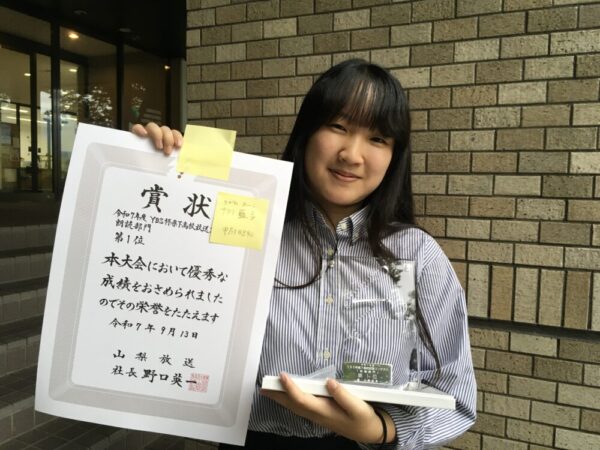 賞状
令和7年度 YBS杯県下高校放送
朗読部門
第1位
本大会において優秀な
成績をおさめられました
のでその栄誉をたたえます
令和7年9月13日
山梨放送
社長 野口英一